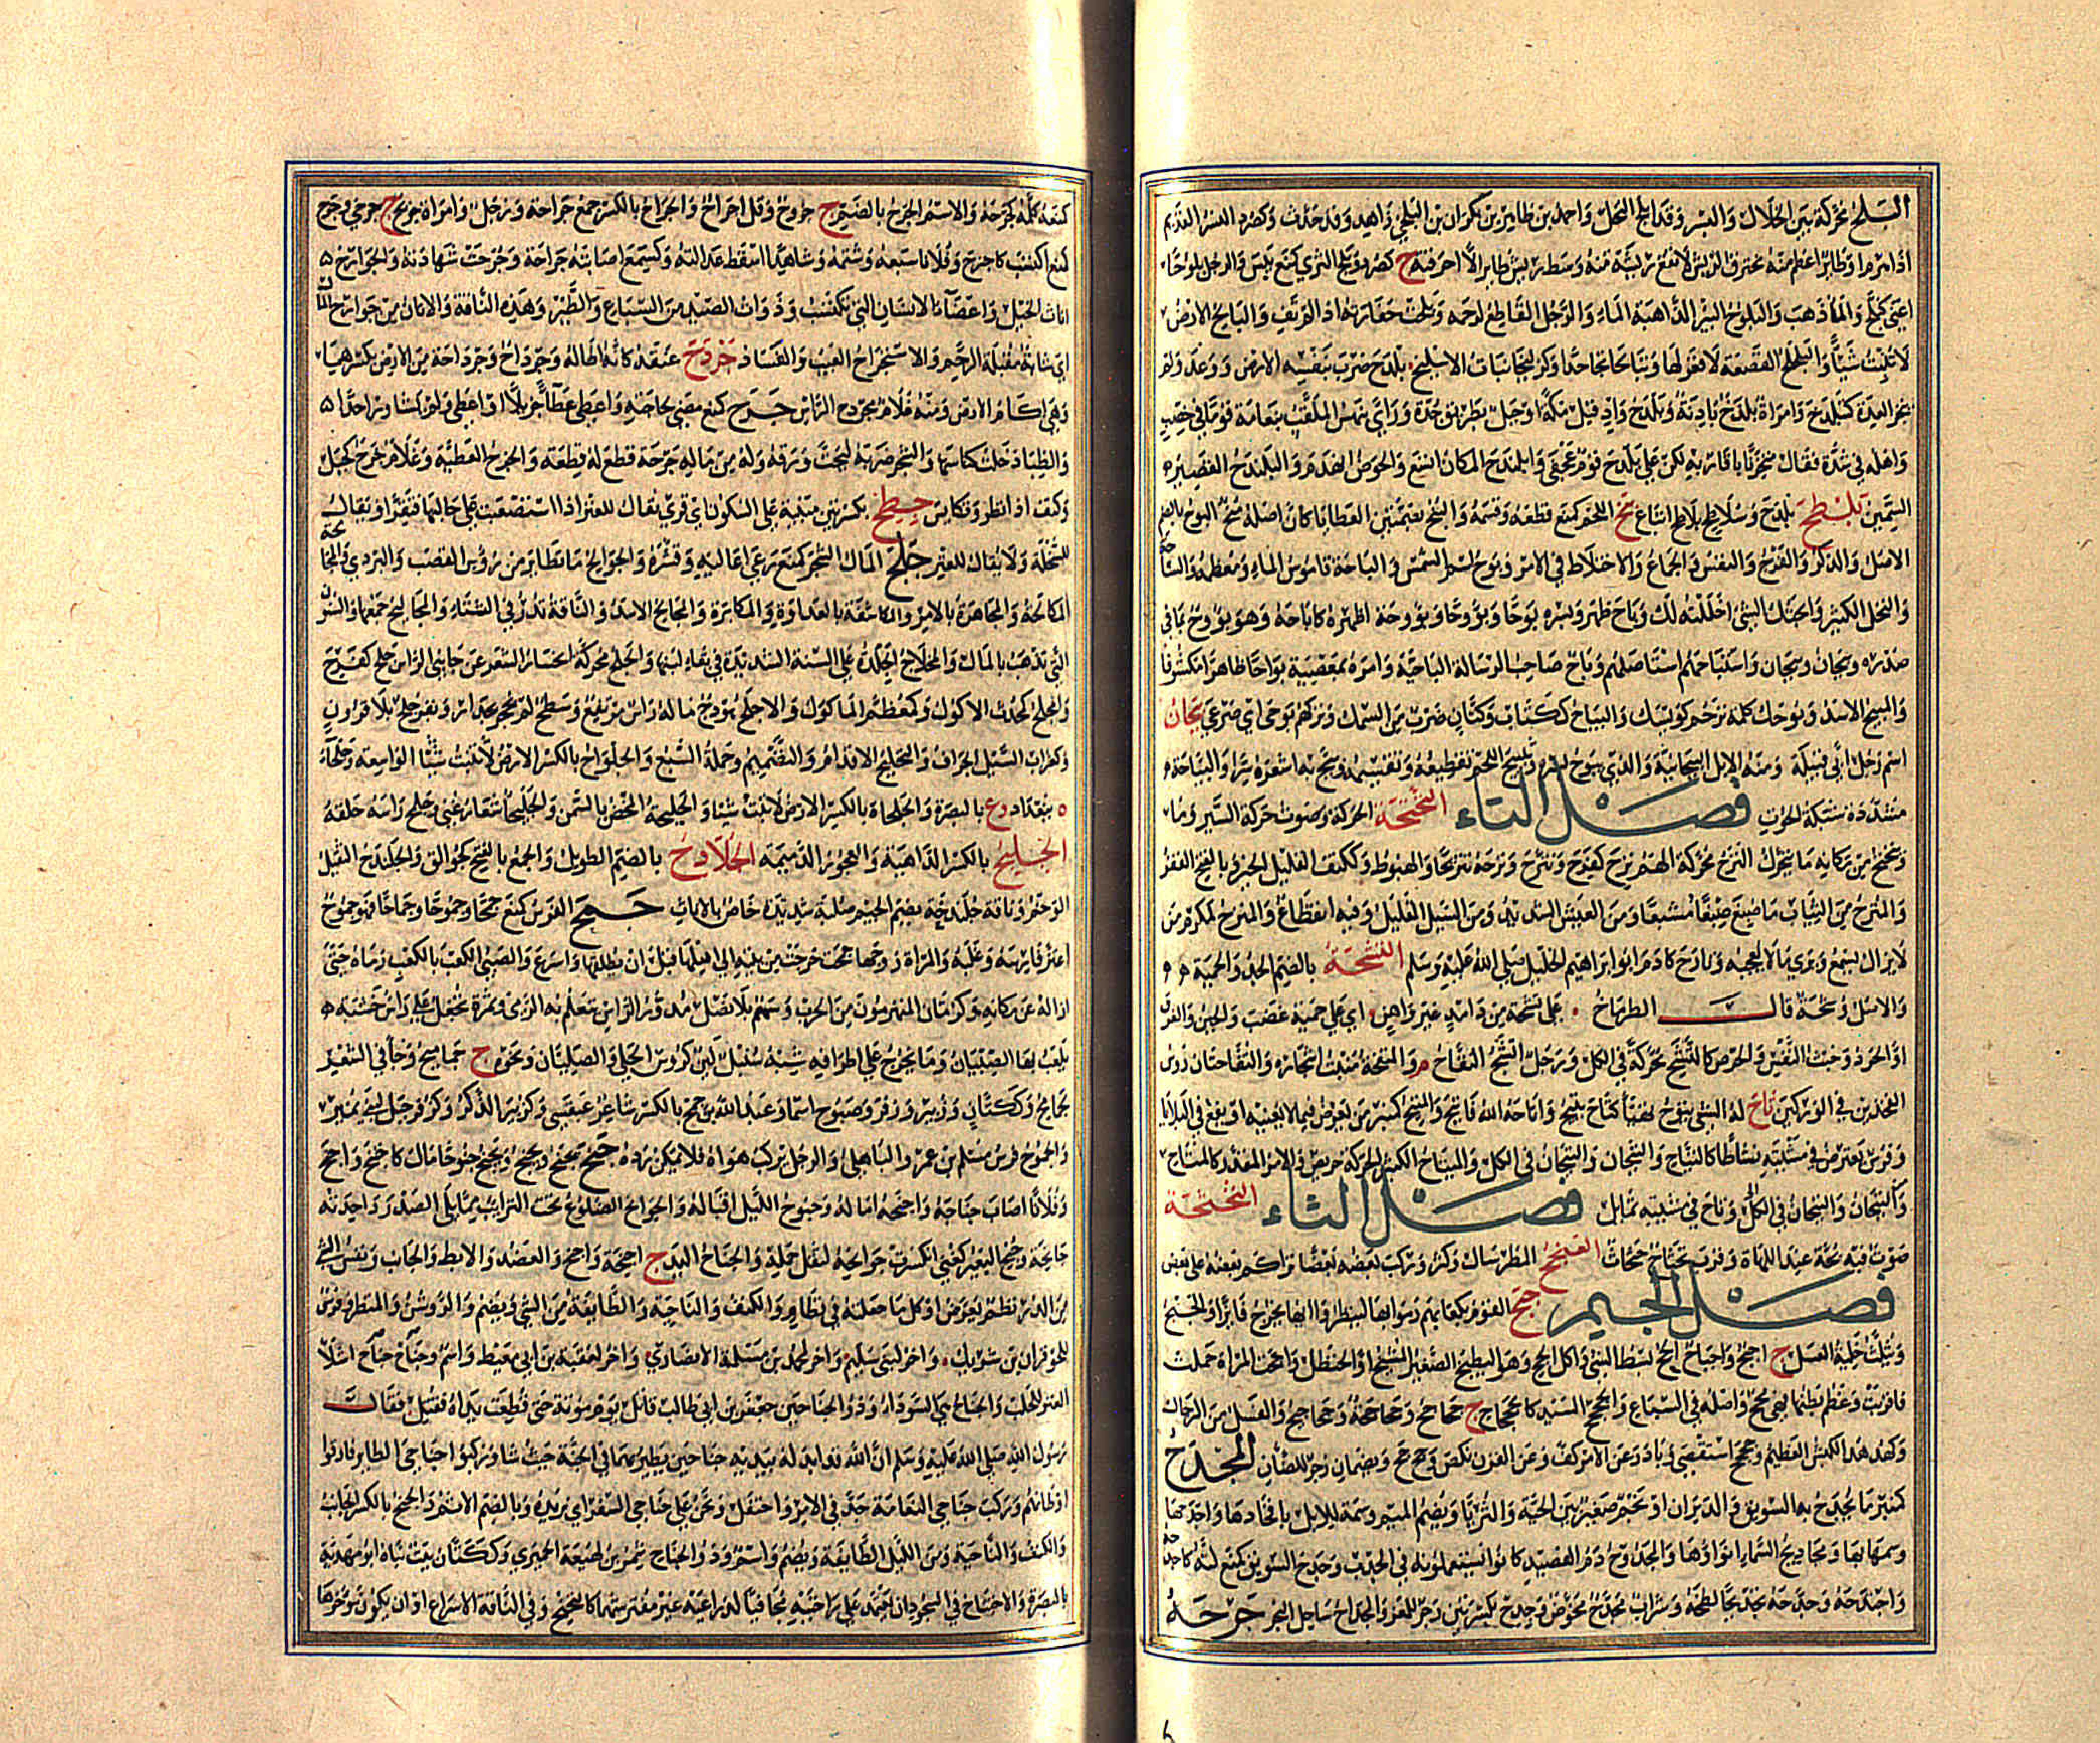 البلح محركة بين الخلال والبسر وقد ابلح النخل واحمد بن طاهر بن بكران بن البلحي زاهد وقد حدث وكصرد النسر القديم
اذا هرم او طاير اعظم منه محترق الريش لا تقع ريشة منه وسط ريش طاير الا احرقته ج كصردان وبلح الثرى كمنع يبس والرجل بلوحا
اعيى كبلح والماء ذهب والبلوح البير الذاهبة الماء والرجل القاطع لرحمه وبلحت خفارته اذا لم تف والبالح الارض
لا تنبت شيئا والبلحلح القصعة لا قعر لها وتبالحا تجاحدا والبليحاء نبات الاسليح بلدح ضرب بنفسه الارض ووعد ولم
ينجز العدة كتبلدح وامراة بلدح بادنة وبلدح واد قبل مكة او جبل بطريق جدة وراى بيهس الملقب بنعامة قوما في خصب
واهله في شدة فقال متحزنا باقاربه لكن على بلدح قوم عجفى وابلندح المكان اتسع والحوض انهدم والبلندح القصير
السمين بلطح بلدح وسلاطح بلاطح اتباع بنح اللحم كمنع قطعه وقسمه والبنح بضمتين العطايا كان اصله منح البوح بالضم
الاصل والذكر والفرج والنفس والجماع والاختلاط في الامر وبوح اسم للشمس والباحة قاموس الماء ومعظمه والساحة
والنخل الكثير وابحتك الشيء احللته لك وباح ظهر وبسره بوحا وبؤوحا وبؤوحة اظهره كاباحه وهو بؤوح بما في
صدره وبيحان وبيحان واستباحهم استاصلهم وباح صاحب الرسالة الباحية وامره بمعصية بواحا ظاهرا مكشوفا
والمبيح الاسد وبوحك كلمة ترحم كويسك والبياح ككتاب وكتان ضرب من السمك وتركهم بوحى اي صرعى بيحان
اسم رجل ابي قبيلة ومنه الابل البيحانية والذي يبوح بسره وتبييح اللحم تقطيعه وتقسيمه وبيح به اشعره سرا والبياحة
مشددة شبكة الحوت فصل التاء التحتحة الحركة وصوت حركة السير وما
يتحتح من مكانه ما يتحرك الترح محركة الهم ترح كفرح وتترح وترحه تتريحا والهبوط وككتف القليل الخير وبالفتح الفقر
والمترح من الثياب ما صبغ صبغا مشبعا ومن العيش الشديد ومن السيل القليل وفيه انقطاع والمترح كمكرم من
لا يزال يسمع ويرى ما لا يعجبه وتارح كادم ابو ابراهيم الخليل صلى الله عليه وسلم التشحة بالضم الجد والحمية
والاصل وشحة قال الطرماح على تشحة من ذائد غير واهن اي على حمية غضب والجبن والفرق
او الحرد وخبث النفس والحرص كالتشح محركة في الكل ورجل اتشح التفاح م والمتفحة منبت اشجاره والتفاحتان رؤس
الفخذين في الوركين تاح له الشيء يتوح تهيأ كتاح يتيح واتاحه الله فاتيح والمتيح كمنبر من يعرض فيما لا يعنيه او يقع في البلايا
وفرس يعترض في مشيته نشاطا كالتياح والتيحان والتيحان في الكل والمتياح الكثير الحركة عريض والامر المقدر كالمتاح
والتيحان والتيحان في الكل وتاح في مشيته تمايل فصل الثاء الثحثحة
صوت فيه بحة عند اللهاة وقرب ثحثاح حثحاث
فصل الجيم جبح القوم بكعابهم رموا بها لينظروا ايها يخرج فايزا والجبح
ويثلث خلية العسل ج اجبح واجباح الجح بسط الشيء واكل الجح وهو البطيخ الصغير المشنج او الحنظل واجحت المراة حملت
فاقربت وعظم بطنها فهي مجح واصله في السباع والجحجح السيد كالجحجاح ج جحاجح وجحاجحة وجحاجيح والفسل من الرجال
وكهدهد الكبش العظيم وجحجح استقصى وبادر وعن الامر كف وعن القرن نكص وجح جح ويضمان زجر للضان المجدح
كمنبر ما يجدح به السويق والدبران او نجم صغير بين الدبران والثريا ويضم الميم وسمة للابل بافخاذها واجدحها
وسمها بها ومجاديح السماء انواؤها والمجدوح دم الفصيد كانوا يستعملونه في الجدب وجدح السويق كمنع لته كاجدحه
واجتدحه وجدحه تجديحا لطخه وشراب مجدح مخوض وجدح بكسرتين زجر للمعز والجداح ساحل البحر جرحه
كمنعه كلمه كجرحه والاسم الجرح بالضم ج جروح وقل اجراح والجراح بالكسر جمع جراحة ورجل وامراة جريح ج جرحى وجرح
كمنع اكتسب كاجترح وفلانا سبعه وشتمه وشاهدا اسقط عدالته وكسمع اصابته جراحة وجرحت شهادته والجوارح
اناث الخيل واعضاء الانسان التي تكتسب وذوات الصيد من السباع والطير وهذه الناقة والاتان من جوارح المال
اي شابة مقبلة الرحم والاستجراح العيب والفساد جردح عنقه كانه اطاله وجرداح وجرداحة من الارض بكسرهما
وهي اكام الارض ومنه غلام مجردح الراس جزح كمنع مضى لحاجته واعطى عطاء جزيلا او اعطى ولم يشاور احدا
والظباء دخلت كناسها والشجر ضربه ليحت ورقه وله من ماله جزحة قطع له قطعة والجزح العطية وغلام جزح كجبل
وكتف اذا نظر وتكايس جطح بكسرتين مبنية على السكون اي قري يقال للعنز اذا استصعبت على حالبها فتقر او يقال
للسخلة ولا يقال للعنز جلح المال الشجر كمنع رعى اعاليه وقشره والجوالح ما تطاير من رؤس القصب والبردي والمجالحة
المكالحة والمجاهرة بالامر والمكاشفة بالعداوة والمكابرة والمجالح الاسد والناقة تدر في الشتاء والمجاليح جمعها والسنون
التي تذهب بالمال والمجلاح الجلدة على السنة الشديدة في بقاء لبنها والجلح محركة انحسار الشعر عن جانبي الراس جلح كفرح
والمجلح كمحدث الاكول وكمعظم الماكول والاجلح هودج ما له راس مرتفع وسطح لم يحجر بجدار وبقر جلح بلا قرون
وكغراب السيل الجراف والتجليح الاقدام والتصميم وحملة السبع والجلواح بالكسر الارض لا تنبت شيئا الواسعة وجلحاء
ة ببغداد وع بالبصرة والجلحاءة بالكسر الارض لا تنبت شيئا والجليحة المخض بالسمن والجليحاء شعار غني وجلح راسه حلقه
الجلبح بالكسر الداهية والعجوز الدميمة الجلادح بالضم الطويل والجمع بالفتح كجوالق والجلندح الثقيل
الوخم وناقة جلندحة بضم الجيم صلبة شديدة خاص بالاناث جمح الفرس كمنع جمحا وجموحا وجماحا وهو جموح
اعتز فارسه وغلبه والمراة زوجها جمحت خرجت من بيته الى اهلها قبل ان يطلقها واسرع والصبي الكعب بالكعب رماه حتى
ازاله عن مكانه وكرمان المنهزمون من الحرب وسهم بلا نصل مدور الراس يتعلم به الرمي وتمرة تجعل على راس خشبة
يلعب بها الصبيان وما يخرج على اطرافه شبه سنبل لين كروس الحلي والصليان ونحوه ج جماميح وجاء في الشعر
جمامح وككتان وزبير وزفر وصبوح اسماء وعبد الله بن جمح بالكسر شاعر عبقسي وكزبير الذكر وكزفر جبل لبني نمير
والجموح فرس مسلم بن عمرو الباهلي والرجل يركب هواه فلا يمكن رده جنح يجنح ويجنح ويجنح جنوحا مال كاجتنح واجنح
وفلانا اصاب جناحه واجنحه اماله وجنوح الليل اقباله والجوانح الضلوع تحت الترائب مما يلي الصدر واحدته
جانحة وجنح البعير كعني انكسرت جوانحه لثقل حمله والجناح اليد ج اجنحة واجنح والعضد والابط والجانب ونفس الشيء
من الدر نظم يعرض او كل ما جعلته في نظام والكنف والناحية والطائفة من الشيء ويضم والروشن والمنظر وفرس
للحوفزان بن شريك واخر لبني سليم واخر لمحمد بن مسلمة الانصاري واخر لعقبة بن ابي معيط واسم وجناح جناح اشلاء
العنز للحلب والجناح هي السوداء وذو الجناحين جعفر بن ابي طالب قاتل يوم موتة حتى قطعت يداه فقتل فقال
رسول الله صلى الله عليه وسلم ان الله قد ابدله بيديه جناحين يطير بهما في الجنة حيث شاء وركبوا جناحي الطاير فارقوا
اوطانهم وركب جناحي النعامة جد في الامر واحتفل ونحن على جناحي السفر اي نريده وبالضم الاثم والجنح بالكسر الجانب
والكنف والناحية ومن الليل الطائفة ويضم واسم وذو الجناح شمر بن لهيعة الحميري وككتان بيت بناه ابو مهدية
بالبصرة والاجتناح في السجود ان يعتمد على راحتيه مجافيا لذراعيه غير مفترشهما كالتجنح وفي الناقة الاسراع او ان يكون مؤخرها